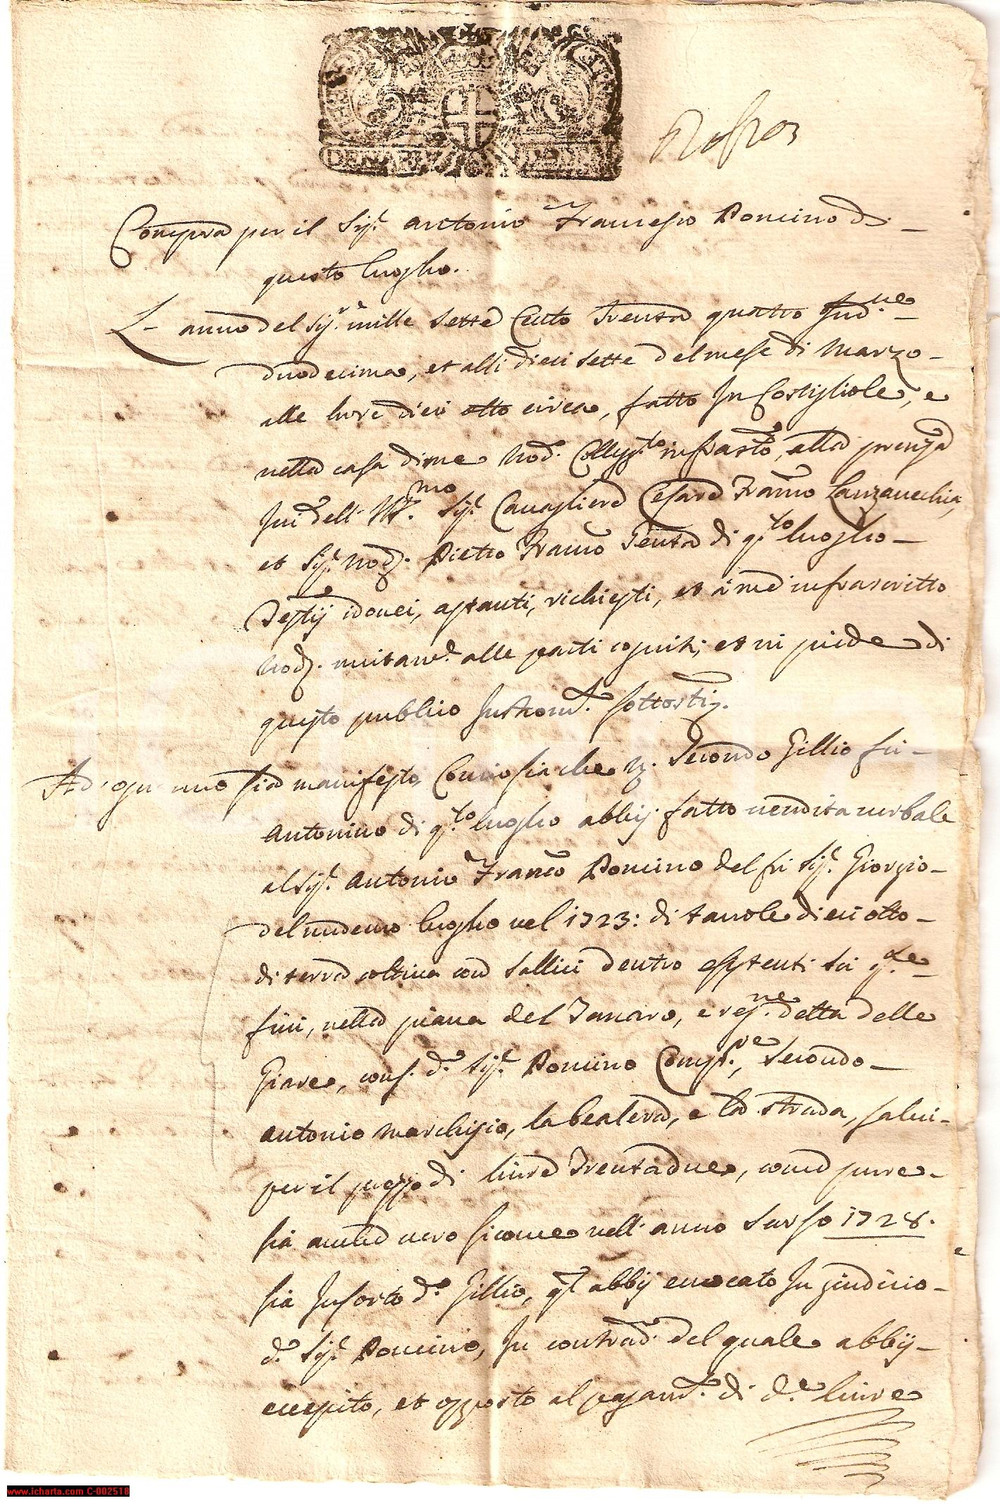 DENARI
Compra per il Sig.r Antonio Francesco Poncino di
questo luogho.
L'anno del Sig.re mille sette Cento Trenta quattro Ind.ne
duodecima, et alli dieci sette del mese di Marzo
alle hore dieci otto circa, fatto In Costigliole, e
nella casa di me Nod. Colleg.to infrastto, alla prenza
Ivi dell' Ill.mo Sig.r Cavagliere Cesare Franco Lanzavechia,
et Sig.r Nod. Pietro Franco di q.to luogho
Testij idonei, astanti, richiesti, et à me infrascritto
Nod. unitam.e alle parti cogniti, et in piede di
questo publico Instrom.to sottostij.
Ad' ogn' uno sia manifesto, Conciosiache Secondo Gillio fu
Antonino di q.to luogho abbij fatto vendita verbale
al Sig.r Antonio Franco Poncino del fu Sig.r Giorgio
del medemo luogho nel 1723: di tavole dieci otto
di terra coltiva con sallici dentro esistenti su q.te
fini, nella piana del Tanaro, e reg.ne detta delle
Giare, cons. d.o Sig.r Poncino Comp.re, Secondo
Antonio Marchisio, la bealera, e la strada, salvi
per il prezzo di livre Trentadue, come pure
sia anche vero sicome nell' anno scorso 1728.
sia Insorto d.o Gillio, q.l abbij evocato In giudicio
d.o Sig.r Poncino, In contrad.o del quale abbij
eccepito, et opposto al pagam.to di d.e livre
www.icharta.com C-002518